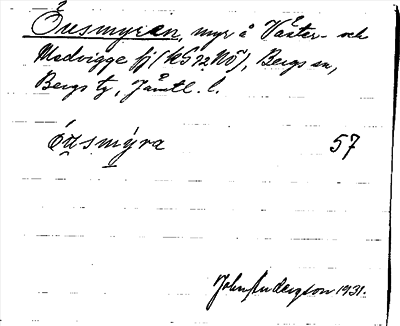 Öusmyran, myr å Väster- och
Medvigge fj (KS 72 NÖ), Bergs sn,
Bergs tg, Jämtl. l.
óu̯smýra 57
John Anderzon 1931.